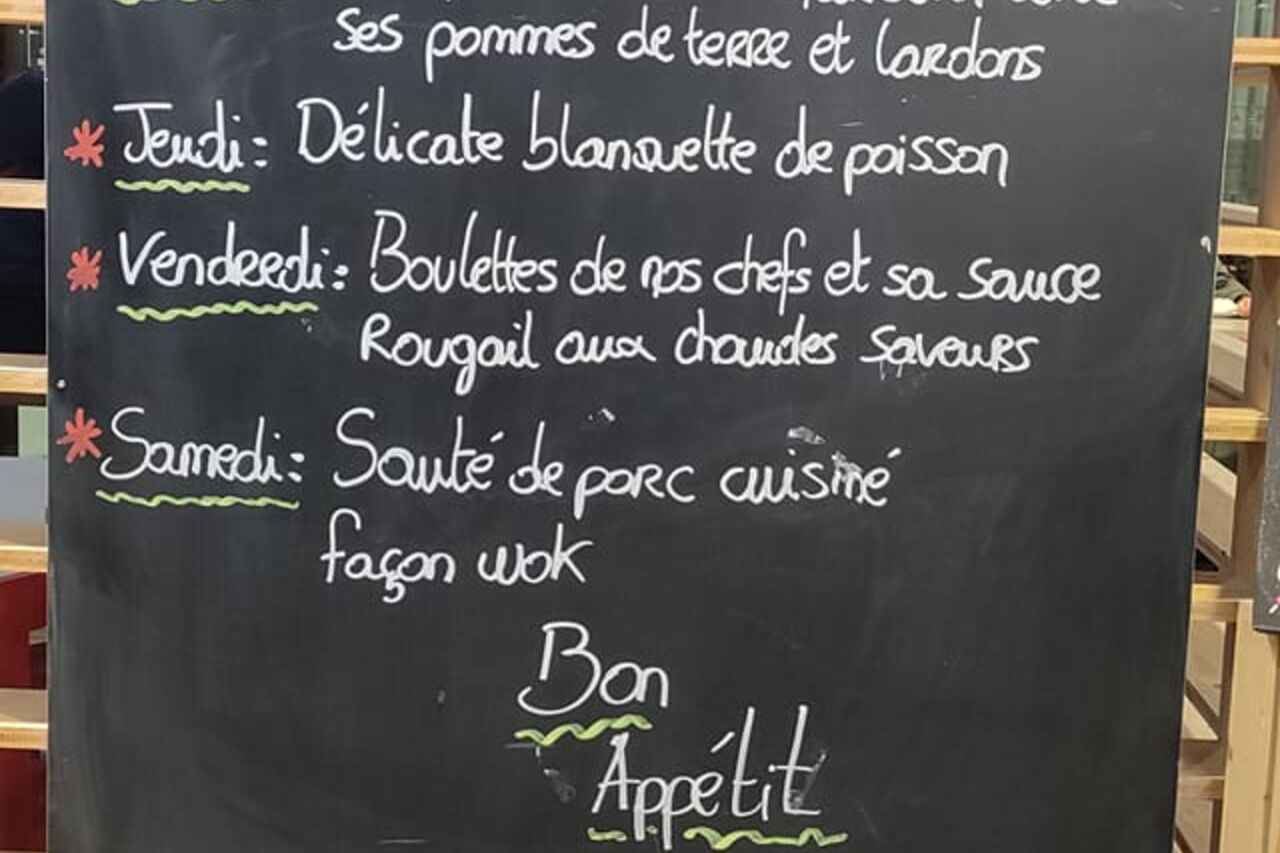 ses pommes de terre et lardons
* Jeudi: Délicate blanquette de poisson
* Vendredi: Boulettes de nos chefs et sa sauce
Rougail aux chaudes saveurs
* Samedi: Sauté de porc cuisiné
façon wok
Bon
Appétit